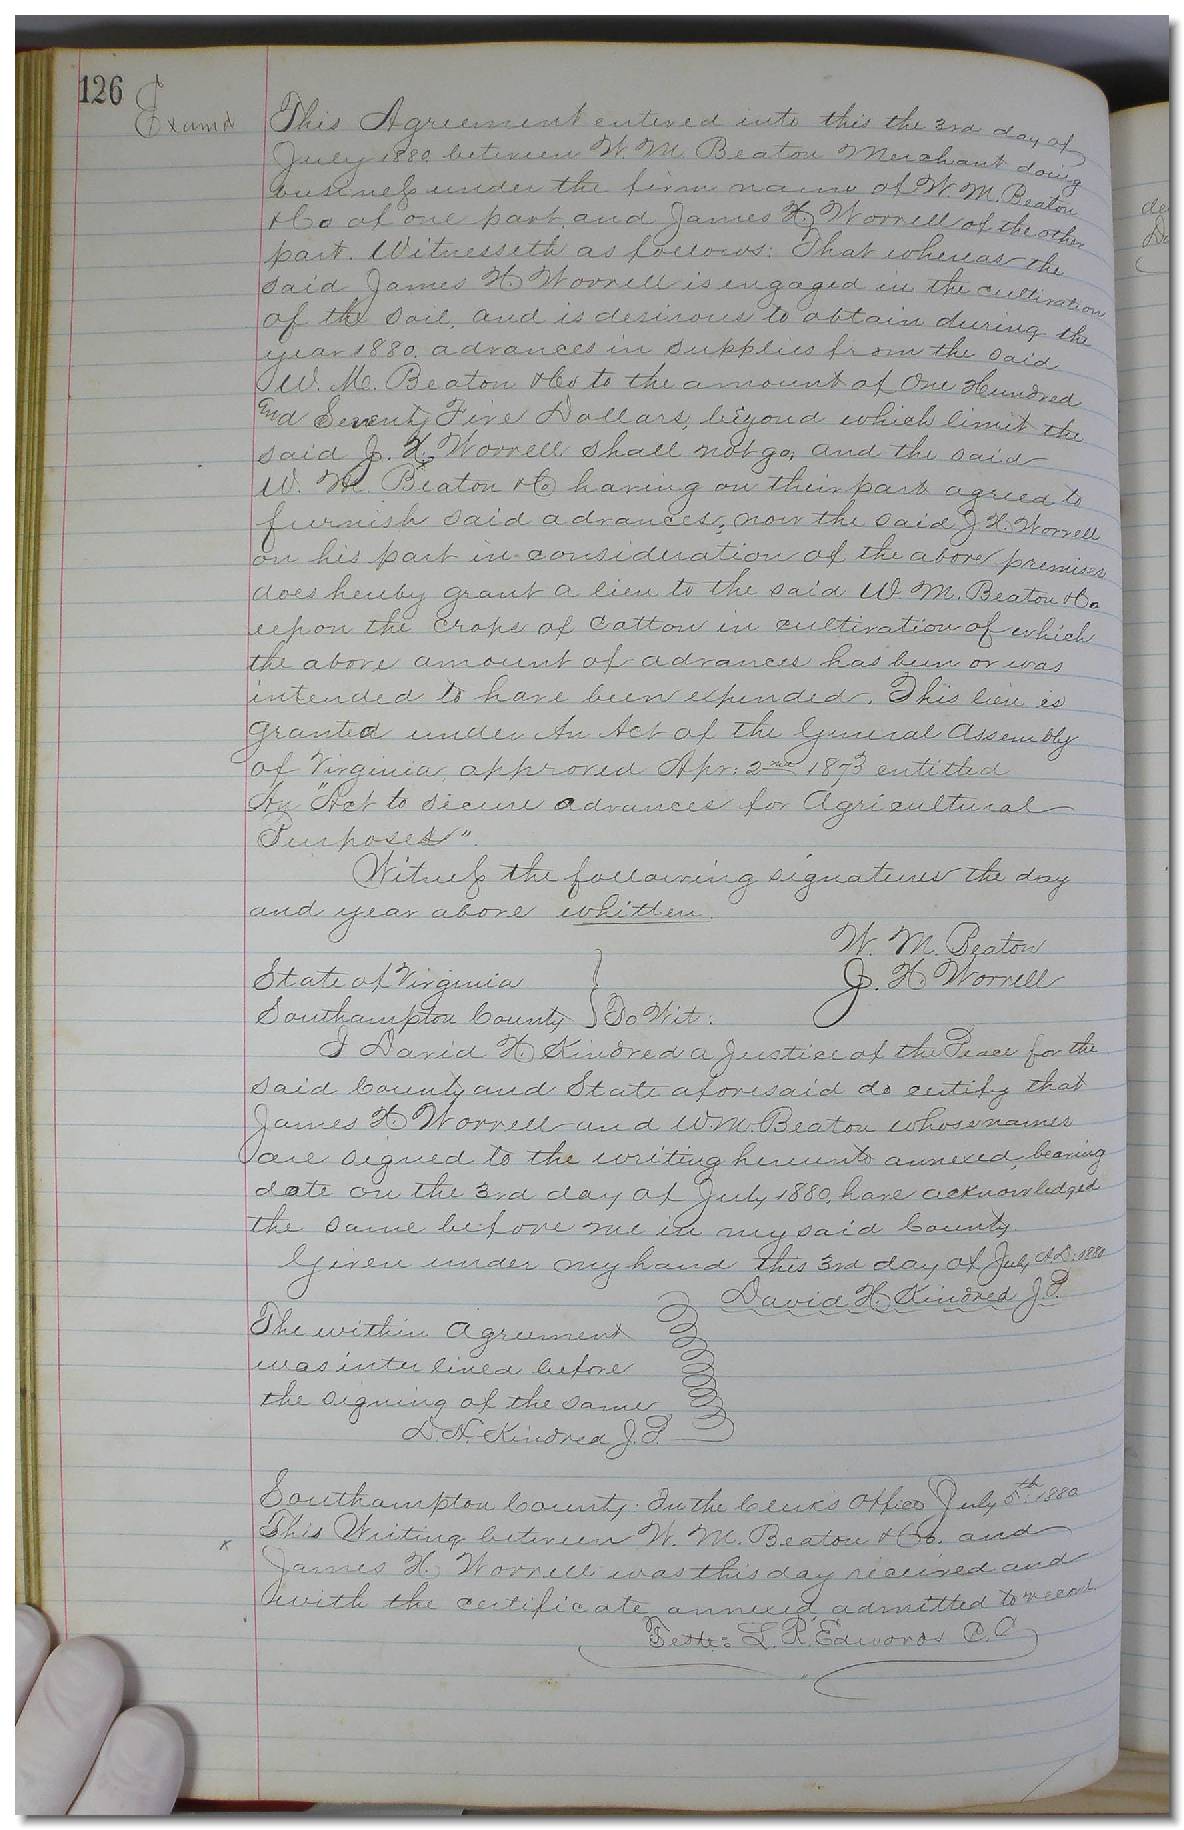 126
Examd
This Agreement entered into this the 3rd day of
July 1880 between W. M. Beaton Merchant doing
business under the firm name of W. M. Beaton
& Co of one part and James H. Worrell of the other
part. Witnesseth as follows: That whereas the
said James H. Worrell is engaged in the cultivation
of the soil, and is desirous to obtain during the
year 1880. advances in supplies from the said
W. M. Beaton & Co to the amount of One Hundred
and Seventy Five Dollars, beyond which limit the
said J. H. Worrell shall not go, and the said
W. M. Beaton & Co having on their part agreed to
furnish said advances, now the said J. H. Worrell
on his part in consideration of the above premises
does hereby grant a lien to the said W. M. Beaton & Co
upon the crops of Cotton in cultivation of which
the above amount of advances has been or was
intended to have been expended. This lien is
granted under An Act of the General Assembly
of Virginia, approved Apr: 2nd 1873 entitled
An "Act to secure advances for Agricultural
Purposes".
Witness the following signatures the day
and year above whitten.
W. M. Beaton
J. H. Worrell
State of Virginia
Southampton County } To Wit:
I David H. Kindred a Justice of the Peace for the
said County and State aforesaid do certify that
James H. Worrell and W. M. Beaton whose names
are signed to the writing hereunto annexed, bearing
date on the 3rd day of July 1880, have acknowledged
the same before me in my said County
Given under my hand this 3rd day of July A.D. 1880
David H. Kindred J.P.
The within Agreement
was inter lined before
the signing of the same
D. H. Kindred J.P.
Southampton County. In the Clerk's Office July 5th 1880
This Writing between W. M. Beaton & Co. and
x
James H. Worrell was this day received and
with the certificate annexed, admitted to record
Teste: L. R. Edwards C.C
de